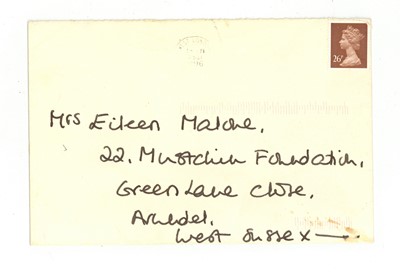 26P
Mrs Eileen Malone,
22, Foundation,
Green Lane Close,
Arundel,
West Sussex